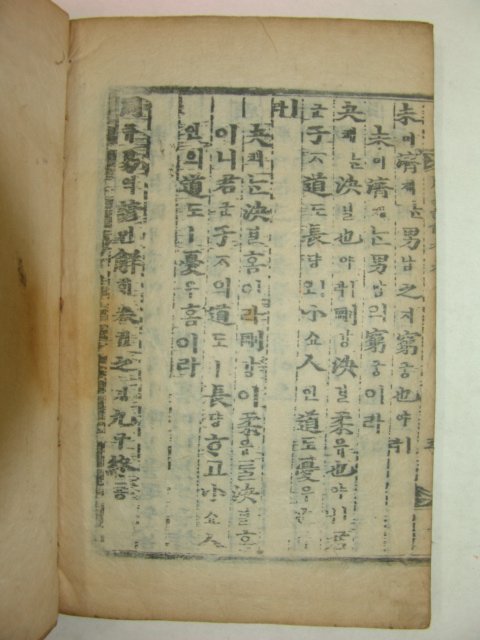 未미濟졔ᄂᆞᆫ男남之지窮궁也야ㅣ라
未미濟졔ᄂᆞᆫ男남의窮궁이라
夬쾌ᄂᆞᆫ決결也야ㅣ라剛강決결柔유也야ㅣ니君
군子ᄌᆞ道도長댱이오小쇼人인道도憂우
ㅣ라
夬쾌ᄂᆞᆫ決결홈이라剛강이柔유를決결홈
이니君군子ᄌᆞ의道도ㅣ長댱ᄒᆞ고小쇼人
인의道도ㅣ憂우홈이라
周쥬易역諺언解ᄒᆡ卷권之지九구終죵